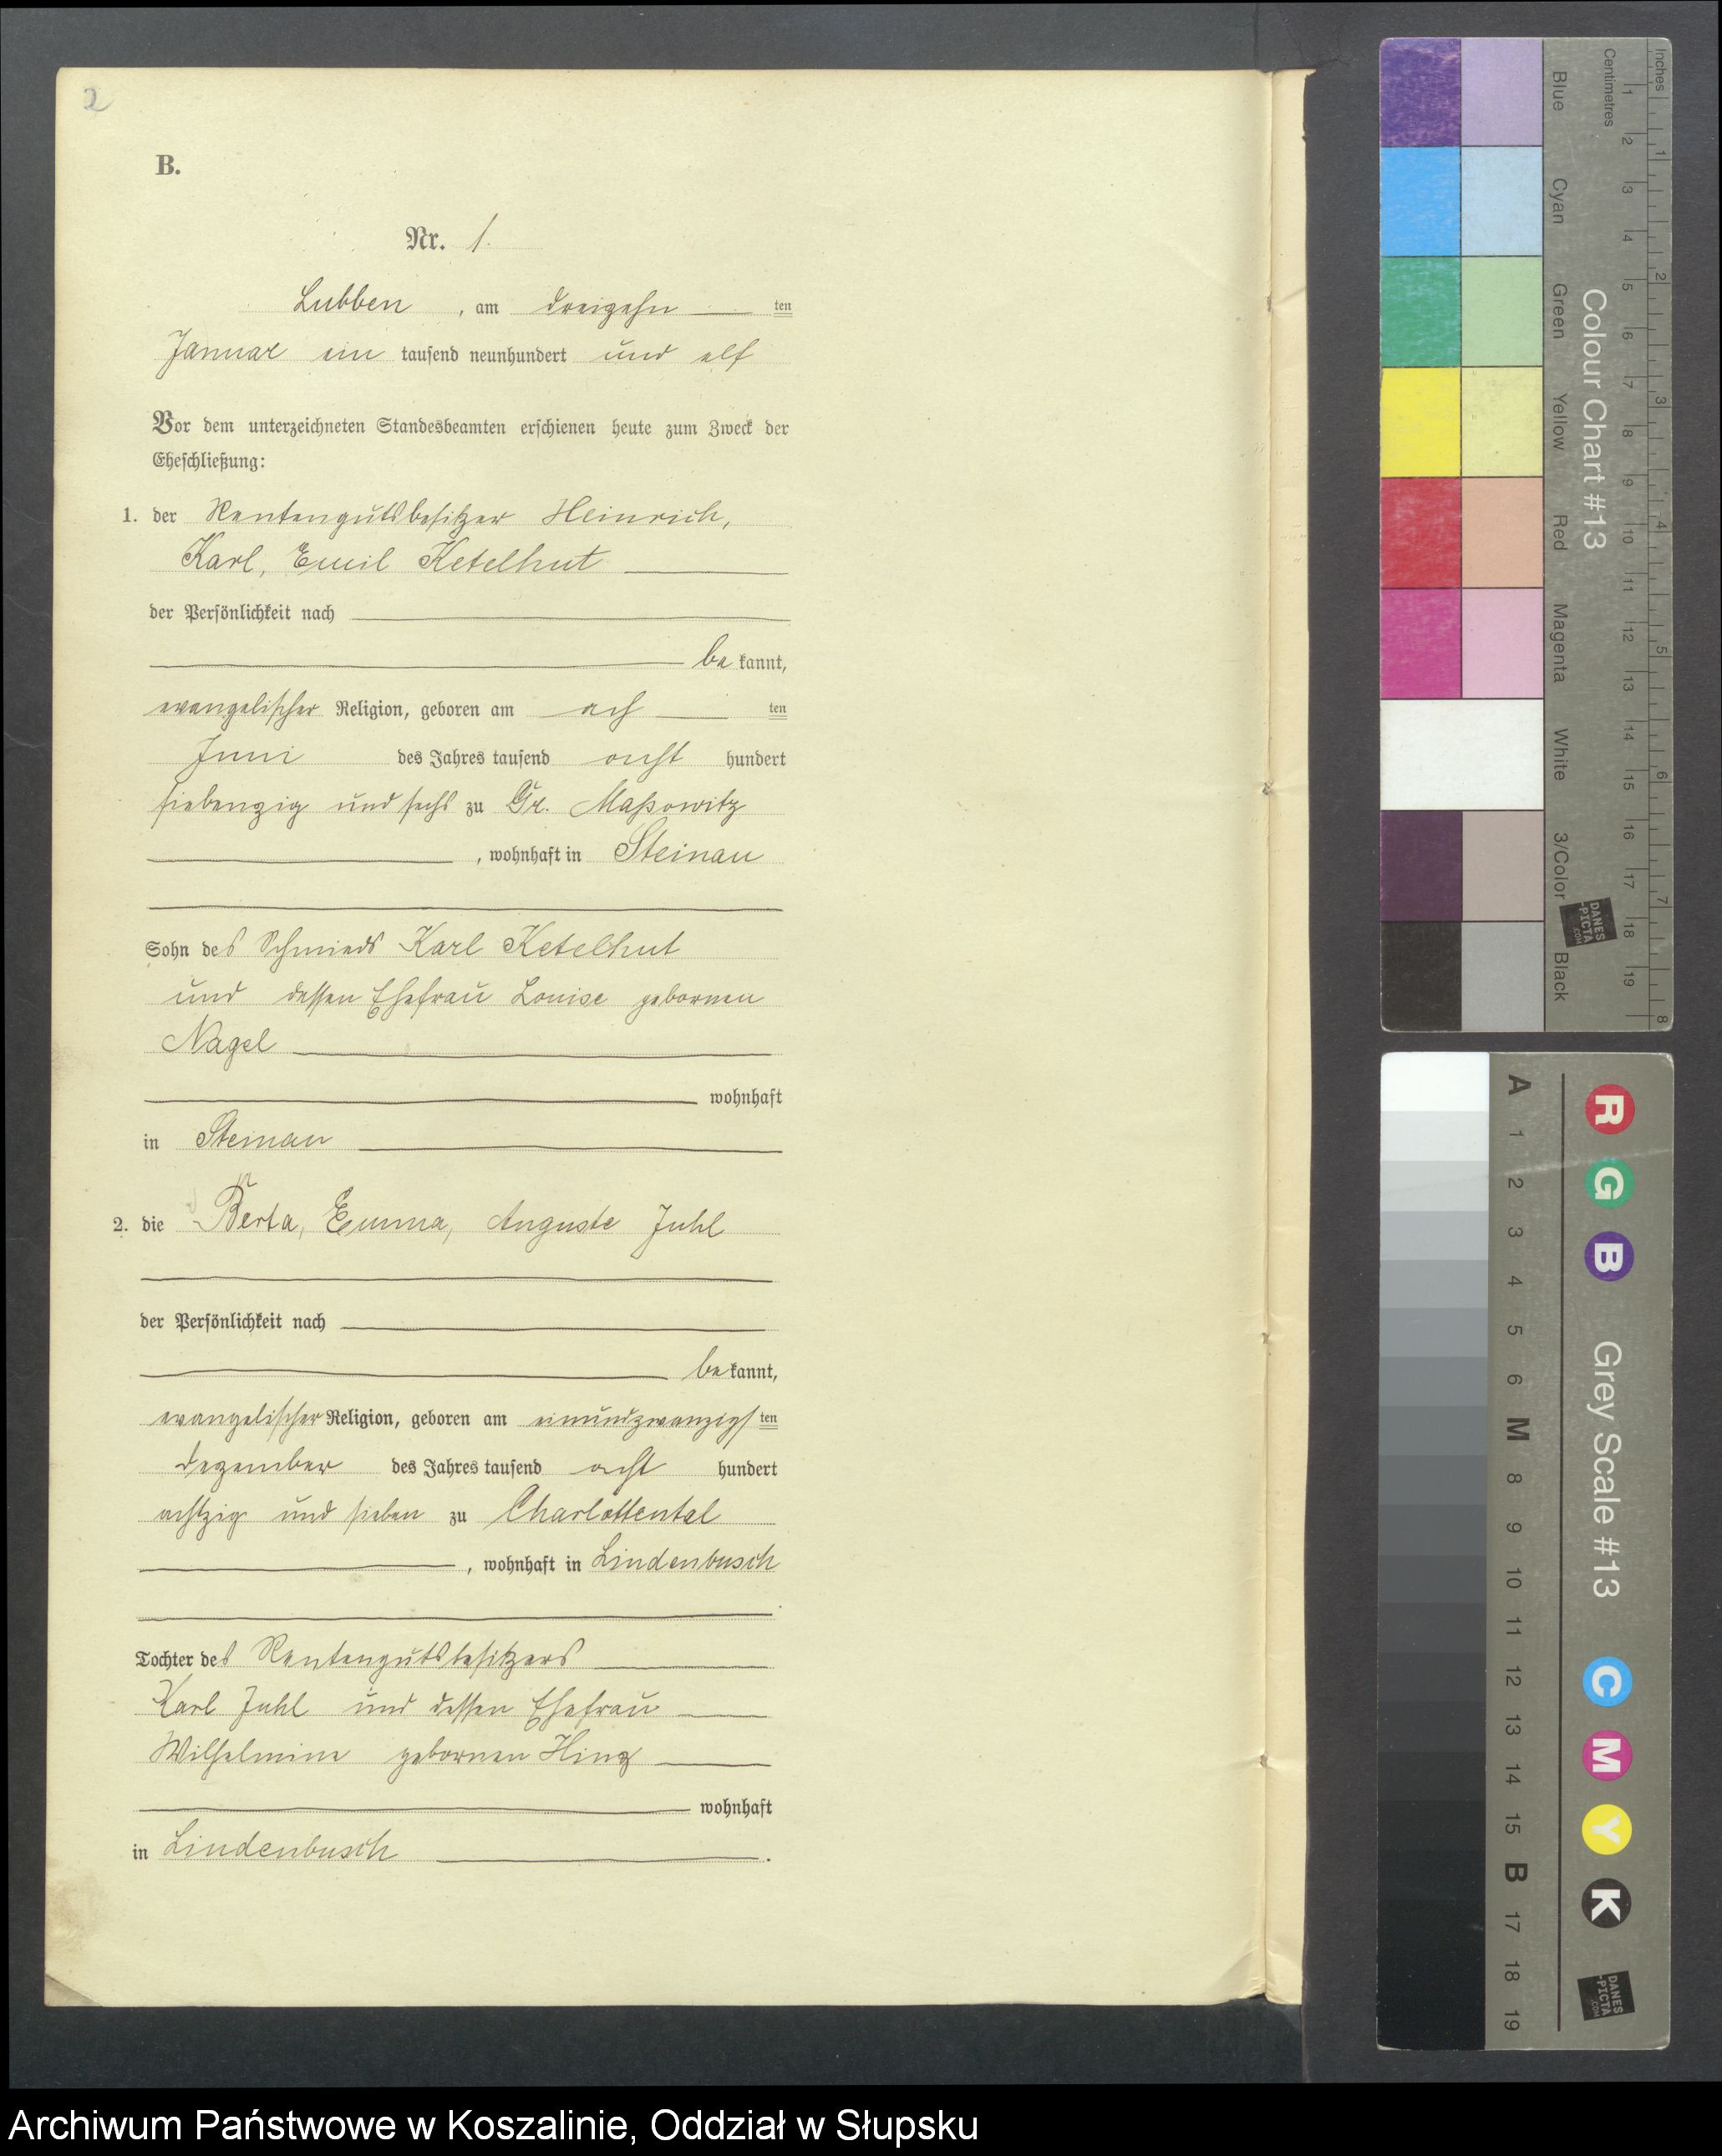 2
B.
Nr. 1.
Lubben, am dreizehn ten
Januar ein tausend neunhundert und elf
Vor dem unterzeichneten Standesbeamten erschienen heute zum Zweck der
Eheschließung:
1. der Rentengutsbesitzer Heinrich,
Karl, Emil Ketelhut
der Persönlichkeit nach
be kannt,
evangelischer Religion, geboren am ach ten
Juni des Jahres tausend acht hundert
siebenzig und sechs zu Gr. Maßowitz
, wohnhaft in Steinau
Sohn des Schmieds Karl Ketelhut
und dessen Ehefrau Louise gebornen
Nagel
wohnhaft
in Steinau
2. die Berta, Emma, Auguste Juhl
der Persönlichkeit nach
be kannt,
evangelischer Religion, geboren am einundzwanzigs ten
Dezember des Jahres tausend acht hundert
achtzig und sieben zu Charlottental
, wohnhaft in Lindenbusch
Tochter des Rentengutsbesitzers
Karl Juhl und dessen Ehefrau
Wilhelmine gebornen Hinz
wohnhaft
in Lindenbusch.
Inches
1 2 3 4 5 6 7 8
Centimetres
1 2 3 4 5 6 7 8 9 10 11 12 13 14 15 16 17 18 19
Colour Chart #13
Blue
Cyan
Green
Yellow
Red
Magenta
White
3/Color
Black
DANES
-PICTA
.COM
Grey Scale #13
R G B
C M Y K
A 1 2 3 4 5 6 M 8 9 10 11 12 13 14 15 B 17 18 19
DANES
-PICTA
.COM
Archiwum Państwowe w Koszalinie, Oddział w Słupsku